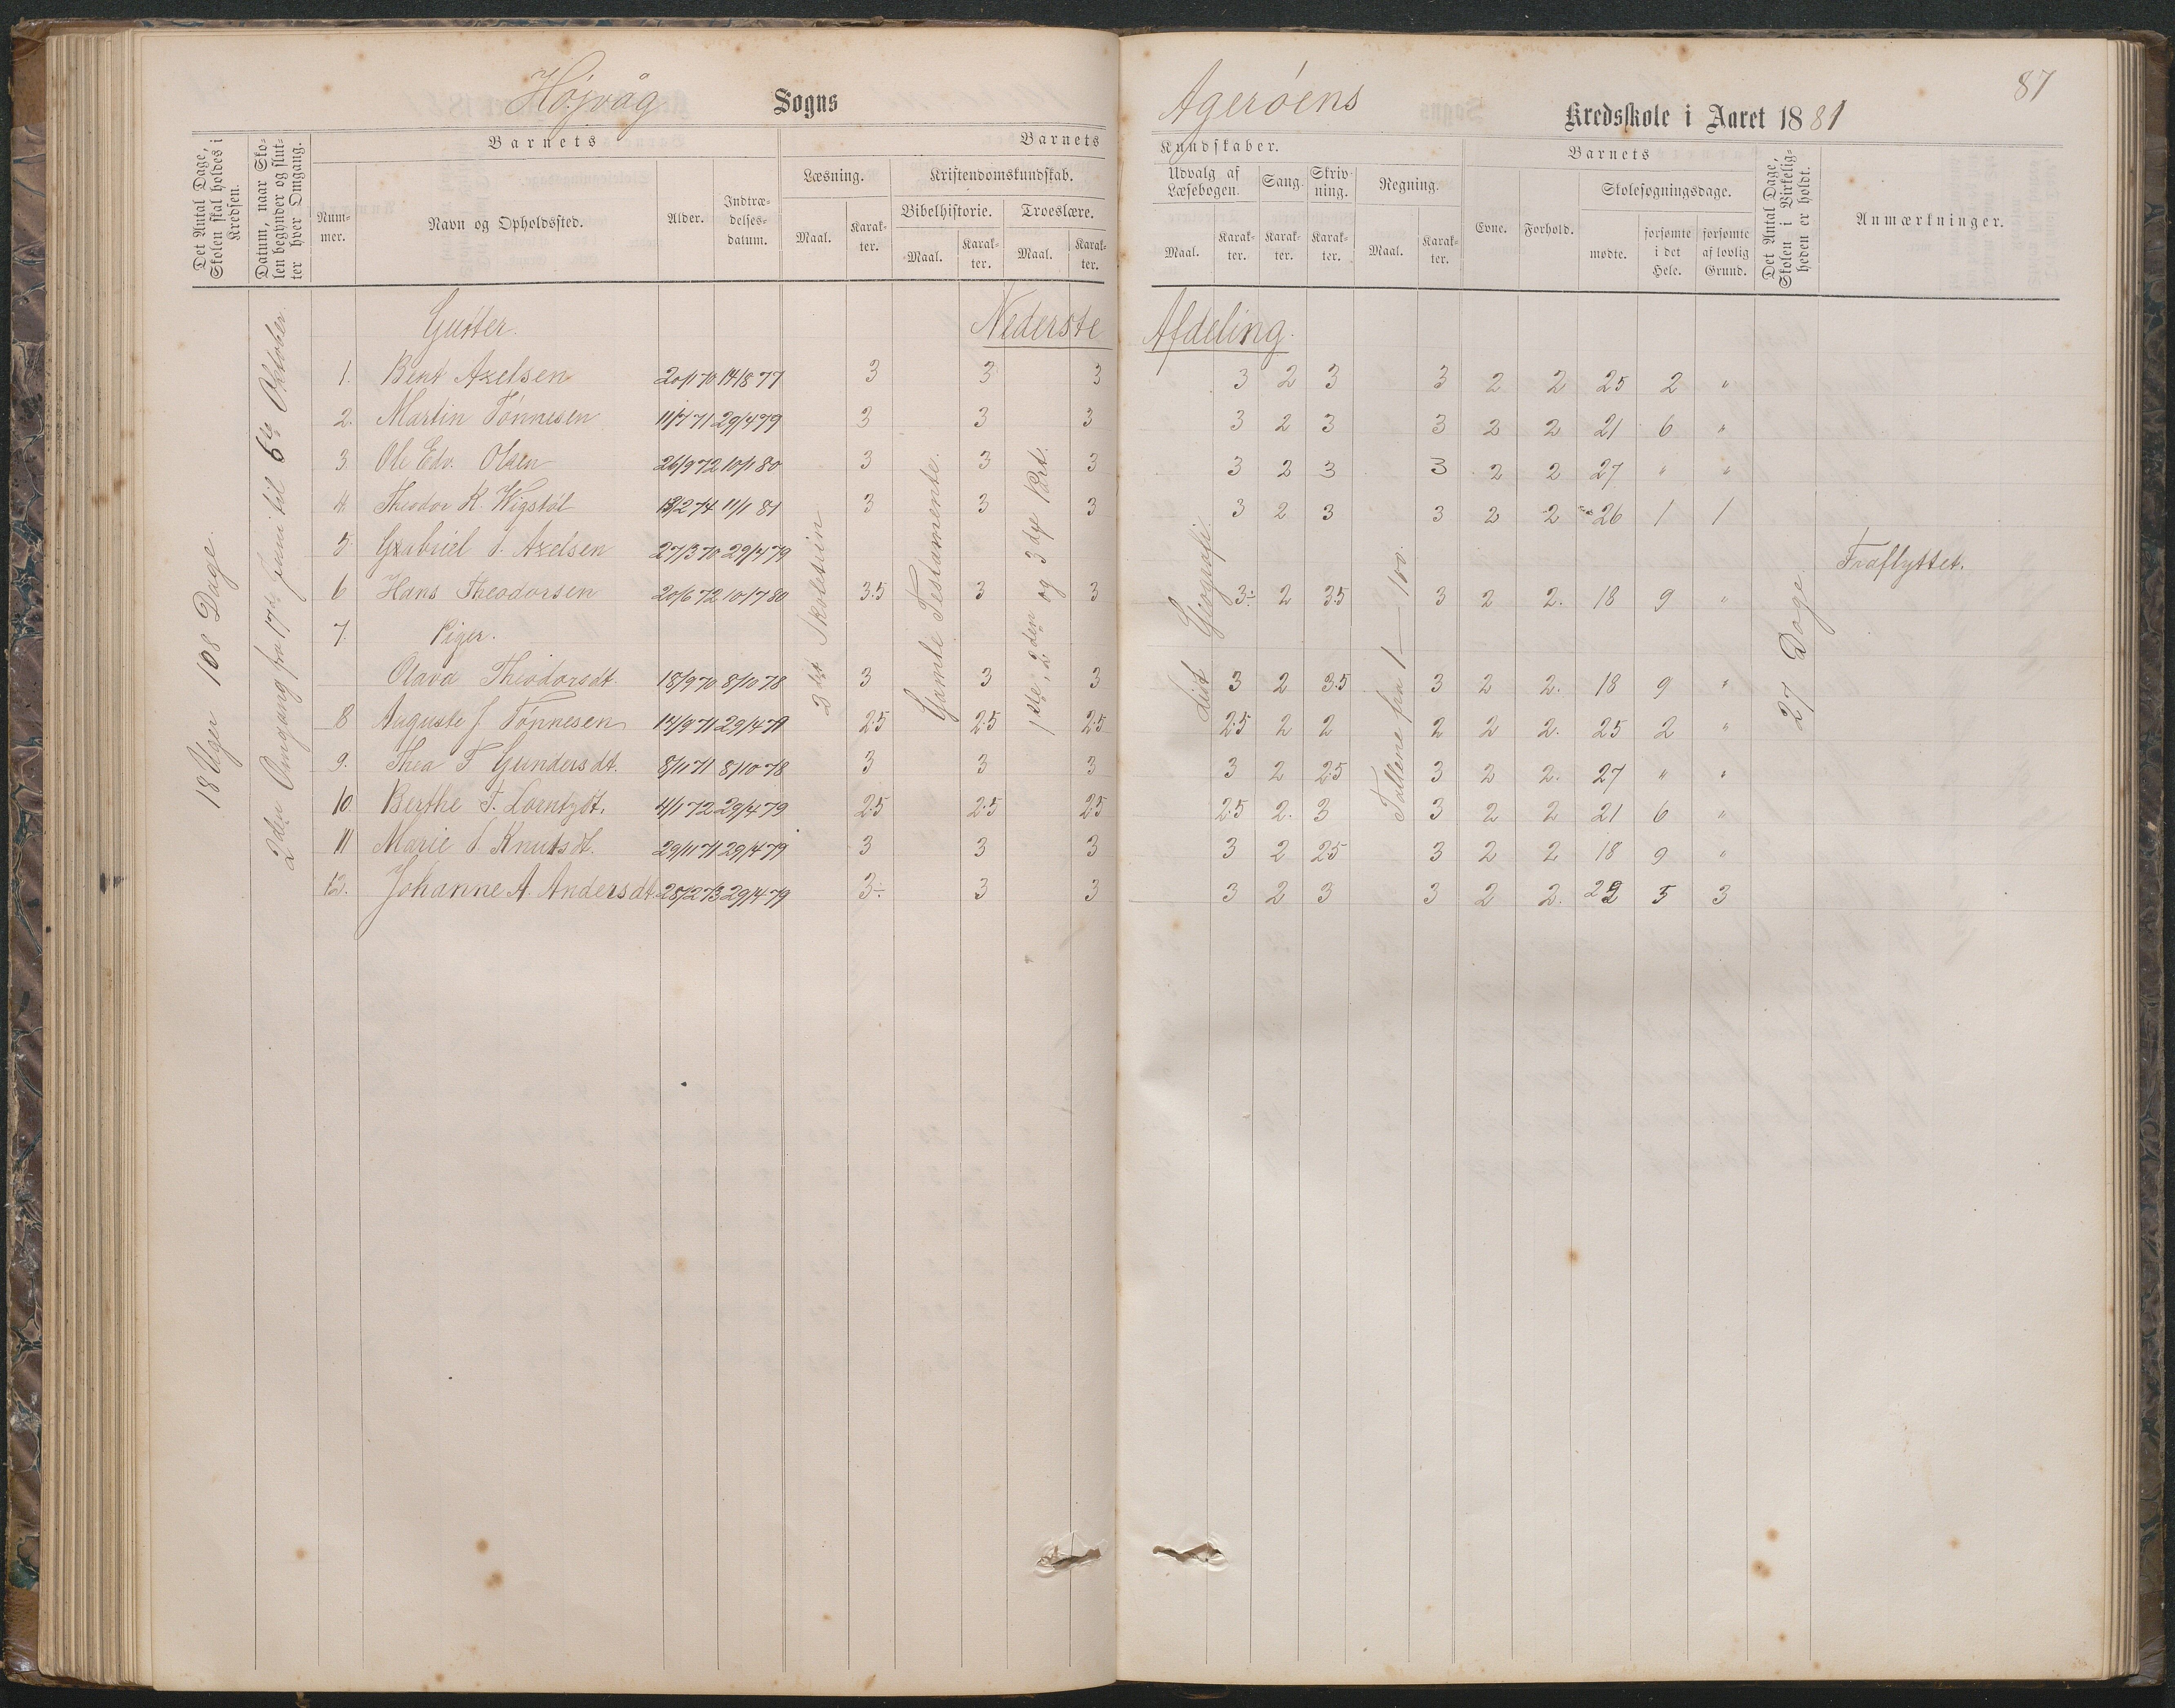 Højvåg Sogns Agerøens Kredsskole i Aaret 1881
87
Det Antal Dage, Skolen skal holdes i Kredsen.
Datum, naar Skolen begynder og slutter hver Omgang.
Barnets
Nummer.
Navn og Opholdssted.
Alder.
Indtrædelsesdatum.
Barnets Kundskaber.
Læsning.
Maal.
Karakter.
Kristendomskundskab.
Bibelhistorie.
Maal.
Karakter.
Troeslære.
Maal.
Karakter.
Udvalg af Læsebogen.
Maal.
Karakter.
Sang.
Karakter.
Skrivning.
Karakter.
Regning.
Maal.
Karakter.
Barnets
Evne.
Forhold.
Skolesøgningsdage.
mødte.
forsømte i det Hele.
forsømte af lovlig Grund.
Det Antal Dage, Skolen i Virkeligheden er holdt.
Anmærkninger.
18 Uger 108 Dage.
2den Omgang fra 17de Juni til 6te Oktober.
2det Skoletrin
Gamle Testamente.
1ste, 2den og 3die Part.
Lidt Geografi.
Tallene fra 1 — 100.
27 Dage
Gutter. Nederste Afdeling.
1. Bent Axelsen 20/1 70 14/8 77 3 3 3 3 2 3 3 2 2 25 2 "
2. Martin Tønnesen 11/7 71 29/4 79 3 3 3 3 2 3 3 2 2 21 6 "
3. Ole Edv. Olsen 26/9 72 10/1 80 3 3 3 3 2 3 3 2 2 27 " "
4. Theodor K. Wigstøl 13/2 74 11/1 81 3 3 3 3 2 3 3 2 2 26 1 1
5. Gabriel S. Axelsen 27/3 70 29/4 79 Fraflyttet.
6 Hans Theodorsen 20/6 72 10/7 80 3.5 3 3 3÷ 2 3.5 3 2 2. 18 9 "
7. Piger.
Olava Theodorsdt. 18/9 70 8/10 78 3 3 3 3 2 3.5 3 2 2. 18 9 "
8 Auguste J. Tønnesen 14/9 71 29/4 79 2.5 2.5 2.5 2.5 2 2 2 2 2. 25 2 "
9. Thea T. Gundersdt. 8/11 71 8/10 78 3 3 3 3 2 2.5 3 2 2. 27 " "
10. Berthe T. Lorntzdt. 4/1 72 29/4 79 2.5 2.5 2.5 2.5 2. 3 3 2 2 21 6 "
11 Marie S. Knutsdt. 29/11 71 29/4 79 3 3 3 3 2 2.5 3 2 2 18 9 "
12. Johanne A. Andersdt. 28/2 73 29/4 79 3÷ 3 3 3 2 3 3 2 2. 22 5 3